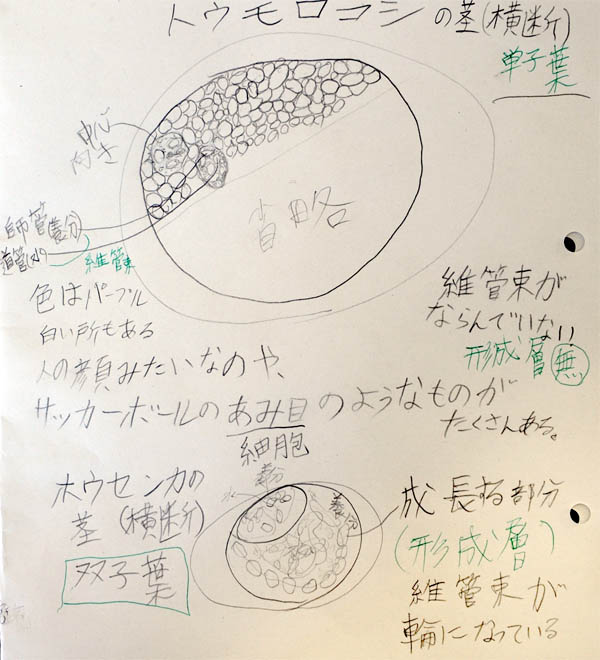 トウモロコシの茎(横断)
単子葉
中心
向き
師管(養分)
道管(水)
維管束
省略
色はパープル
白い所もある
人の顔みたいなのや、
サッカーボールのあみ目のようなものが
たくさんある。
細胞
維管束が
ならんでいない
形成層無
ホウセンカの
茎(横断)
双子葉
水
養分
成長する部分
(形成層)
維管束が
輪になっている